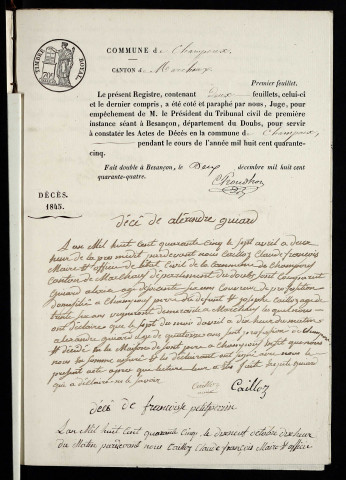 TIMBRE ROYAL
COMMUNE de Champoux
CANTON de Marchaux
Premier feuillet.
Le présent Registre, contenant feuillets, celui-ci
et le dernier compris, a été coté et paraphé par nous, Juge, pour
empêchement de M. le Président du Tribunal civil de première
instance séant à Besançon, département du Doubs, pour servir
à constater les Actes de Décès en la commune de Champoux,
pendant le cours de l'année mil huit cent quarante-
cinq.
Fait double à Besançon, le Deux décembre mil huit cent
quarante-quatre.
DÉCÈS.
1845.
décé de aléxandre guiard
L'an Mil huit cent quarante cinq le sept avril a deux
heur de la pardevant nous Cailloz Claude françois
Maire et officier de l'état Civil de la Commune de Champoux
Canton de Marchaux département du doubs sont comparant
guiard agé de Cinquante six ans de profession
domicilié a Champoux pere du défunt et joseph Cailloz agé de
trente six ans demeurant a Marchaux les quels nous
ont déclaré que le sept du mois d'avril a dix heur du matin
alexandre guiard agé de quatorze ans sans profession de Champoux
est décédé en la Maison de son pere a Champoux
nous et les déclarant ont signé avec nous le
présent acte apres que lecture leur a été fait
qui a déclaré ne le savoir
Cailloz Cailloz
décé de francoise petitperrin
L'an Mil huit cent quarante Cinq le dixneuf octobre dix heur
du Matin pardevant nous Cailloz Claude françois Maire et officier